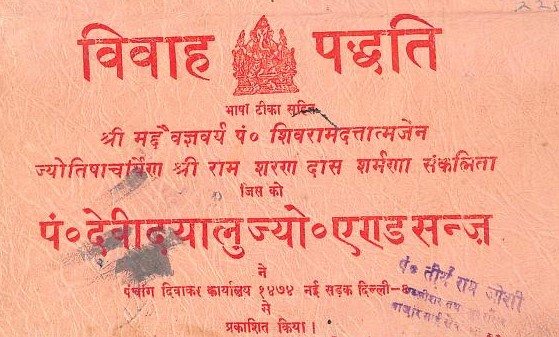 विवाह पद्धति
भाषा टीका सहित
श्री मद्दैवज्ञवर्य पं० शिवरामदत्तात्मजेन
ज्योतिषाचार्येण श्री राम शरण दास शर्मणा संकलिता
जिस को
पं०देवीदयालुज्यो०एण्डसन्ज़
ने
पंचांग दिवाकर कार्यालय १४७४ नई सड़क दिल्ली-
से
प्रकाशित किया।
पं० तीर्थ राम जोशी